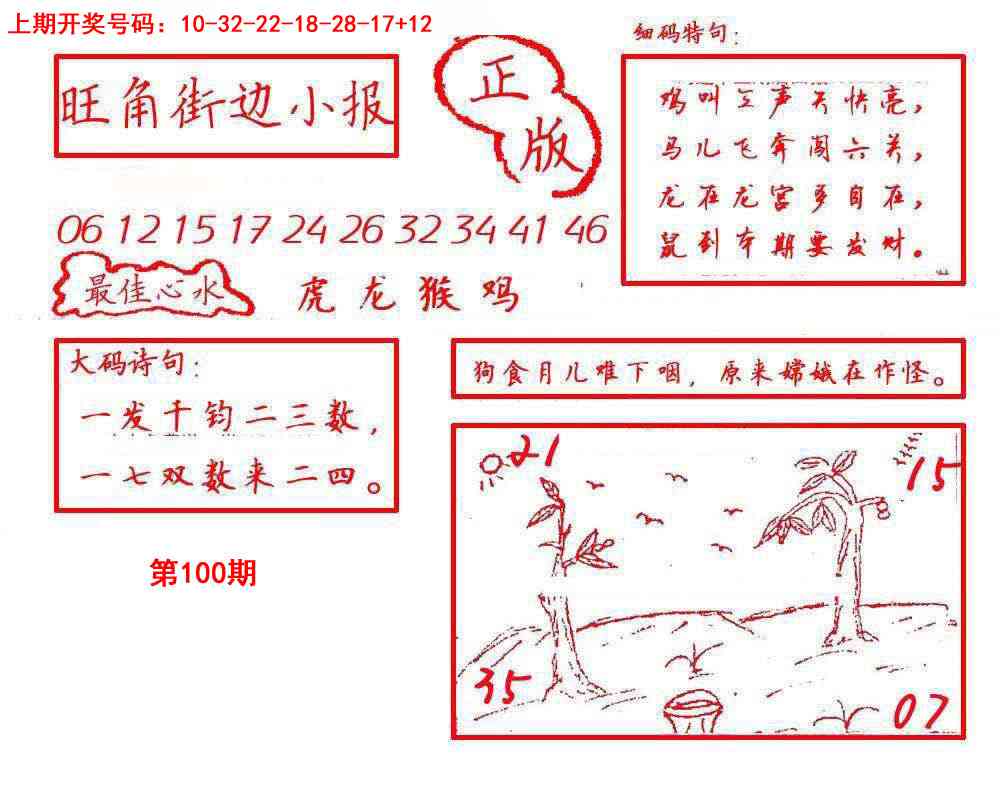 上期开奖号码：10-32-22-18-28-17+12
细码特句：
旺角街边小报
正
版
鸡叫三声天快亮，
马儿飞奔闯六关，
龙在龙宫多自在，
鼠到本期要发财。
06 12 15 17 24 26 32 34 41 46
最佳心水
虎龙猴鸡
大码诗句：
一发千钧二三数，
一七双数来二四。
狗食月儿难下咽，原来嫦娥在作怪。
21
15
35
07
第100期